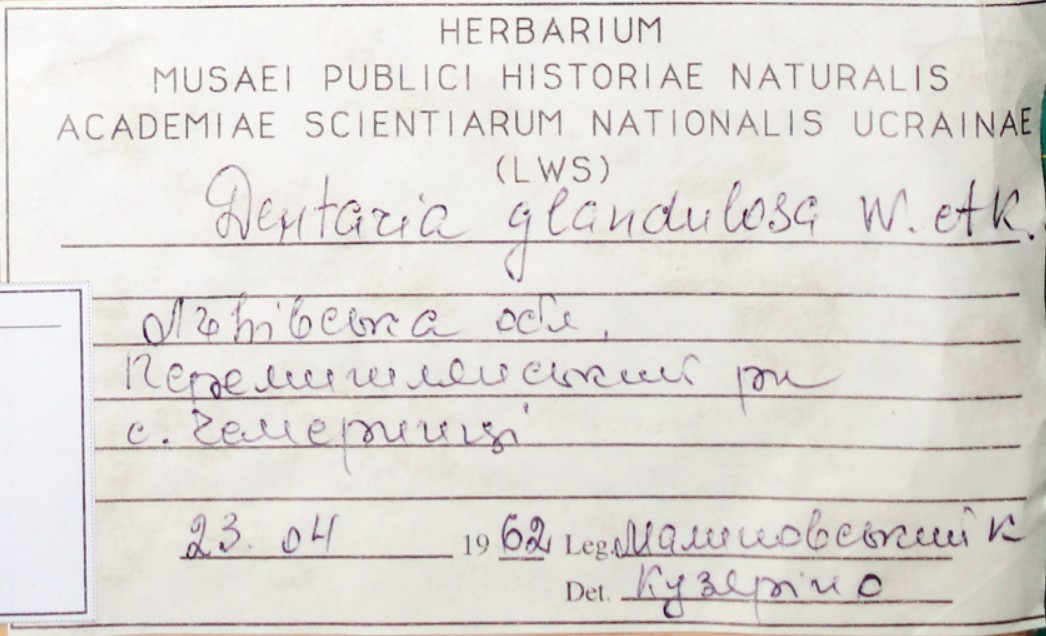 HERBARIUM
MUSAEI PUBLICI HISTORIAE NATURALIS
ACADEMIAE SCIENTIARUM NATIONALIS UCRAINAE
(LWS)
Dentaria glandulosa W. et K.
Львівська обл,
Перемишлянський рн
с. Чемеринці
23. 04 1962 Leg. Малиновський К
Det. Кузярін О